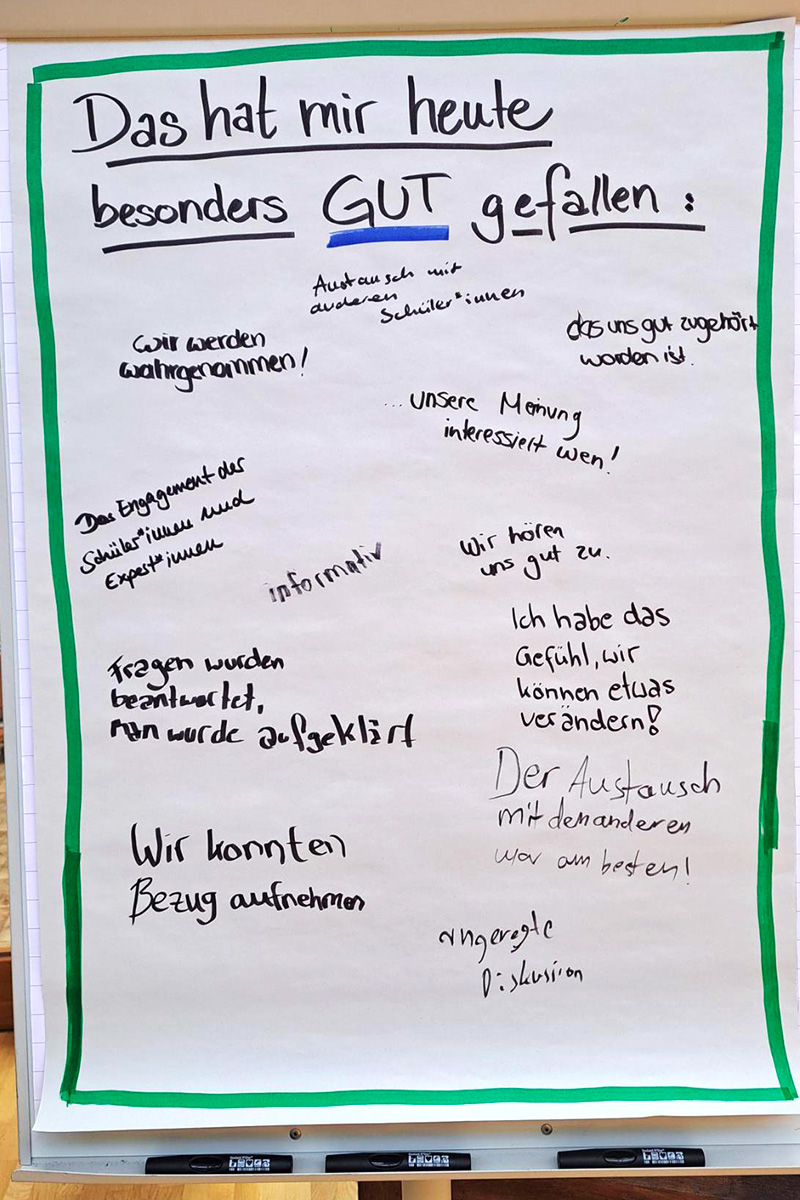 Das hat mir heute
besonders GUT gefallen :
Austausch mit
anderen
Schüler*innen
wir werden
wahrgenommen!
das uns gut zugehört
worden ist.
... unsere Meinung
interessiert wen!
Das Engagement der
Schüler*innen und
Expert*innen
informativ
Wir hören
uns gut zu.
Ich habe das
Gefühl, wir
können etwas
verändern!
Fragen wurden
beantwortet,
man wurde aufgeklärt
Der Austausch
mit den anderen
war am besten!
Wir konnten
Bezug aufnehmen
angeregte
Diskusiion